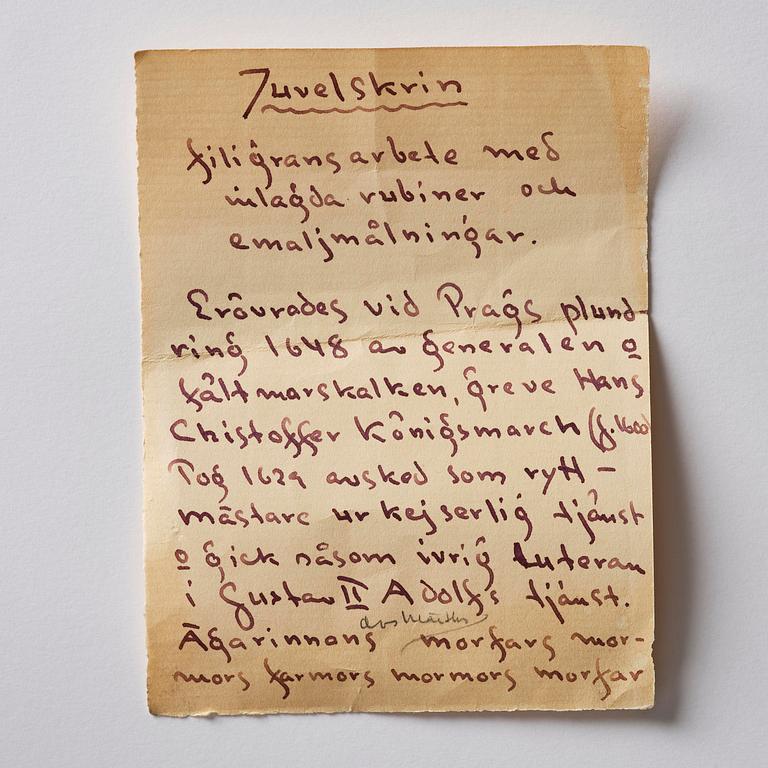 Juvelskrin
filigransarbete med
inlagda rubiner och
emaljmålningar.
Erövrades vid Prags plund-
ring 1648 av generalen o
fältmarskalken, greve Hans
Chistoffer Königsmarch (f. 1600
Tog 1629 avsked som rytt-
mästare ur kejserlig tjänst
o gick såsom ivrig Luteran
i Gustav II Adolfs tjänst.
dvs
Ägarinnans morfars mor-
mors farmors mormors morfar